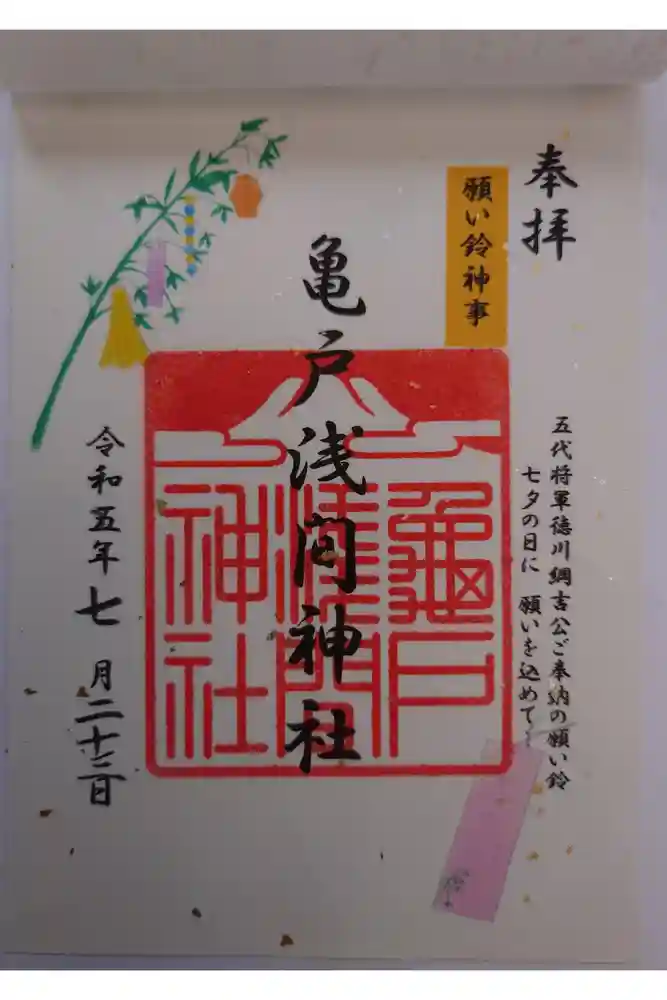 奉拝
願い鈴神事
五代将軍徳川綱吉公ご奉納の願い鈴
七夕の日に 願いを込めて
亀戸浅間神社
龜戸
浅間
神社
令和五年七月二十二日